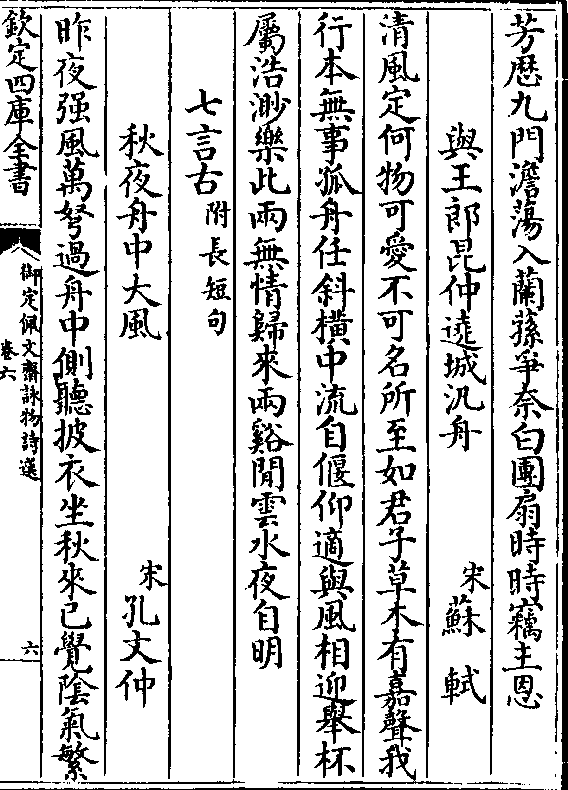 芳歴九門澹蕩入蘭蓀爭奈白團扇時時竊主恩
與王郎昆仲遶城汎舟 宋蘇軾
清風定何物可愛不可名所至如君子草木有嘉聲我
行本無事孤舟任斜橫中流自偃仰適與風相迎舉杯
屬浩渺樂此兩無情歸來兩谿閒雲水夜自明
七言古附長短句
秋夜舟中大風 宋孔文仲
昨夜强風萬弩過舟中側聽披衣坐秋來已覺陰氣繁
欽定四庫全書
御定佩文齋詠物詩選
卷六
六